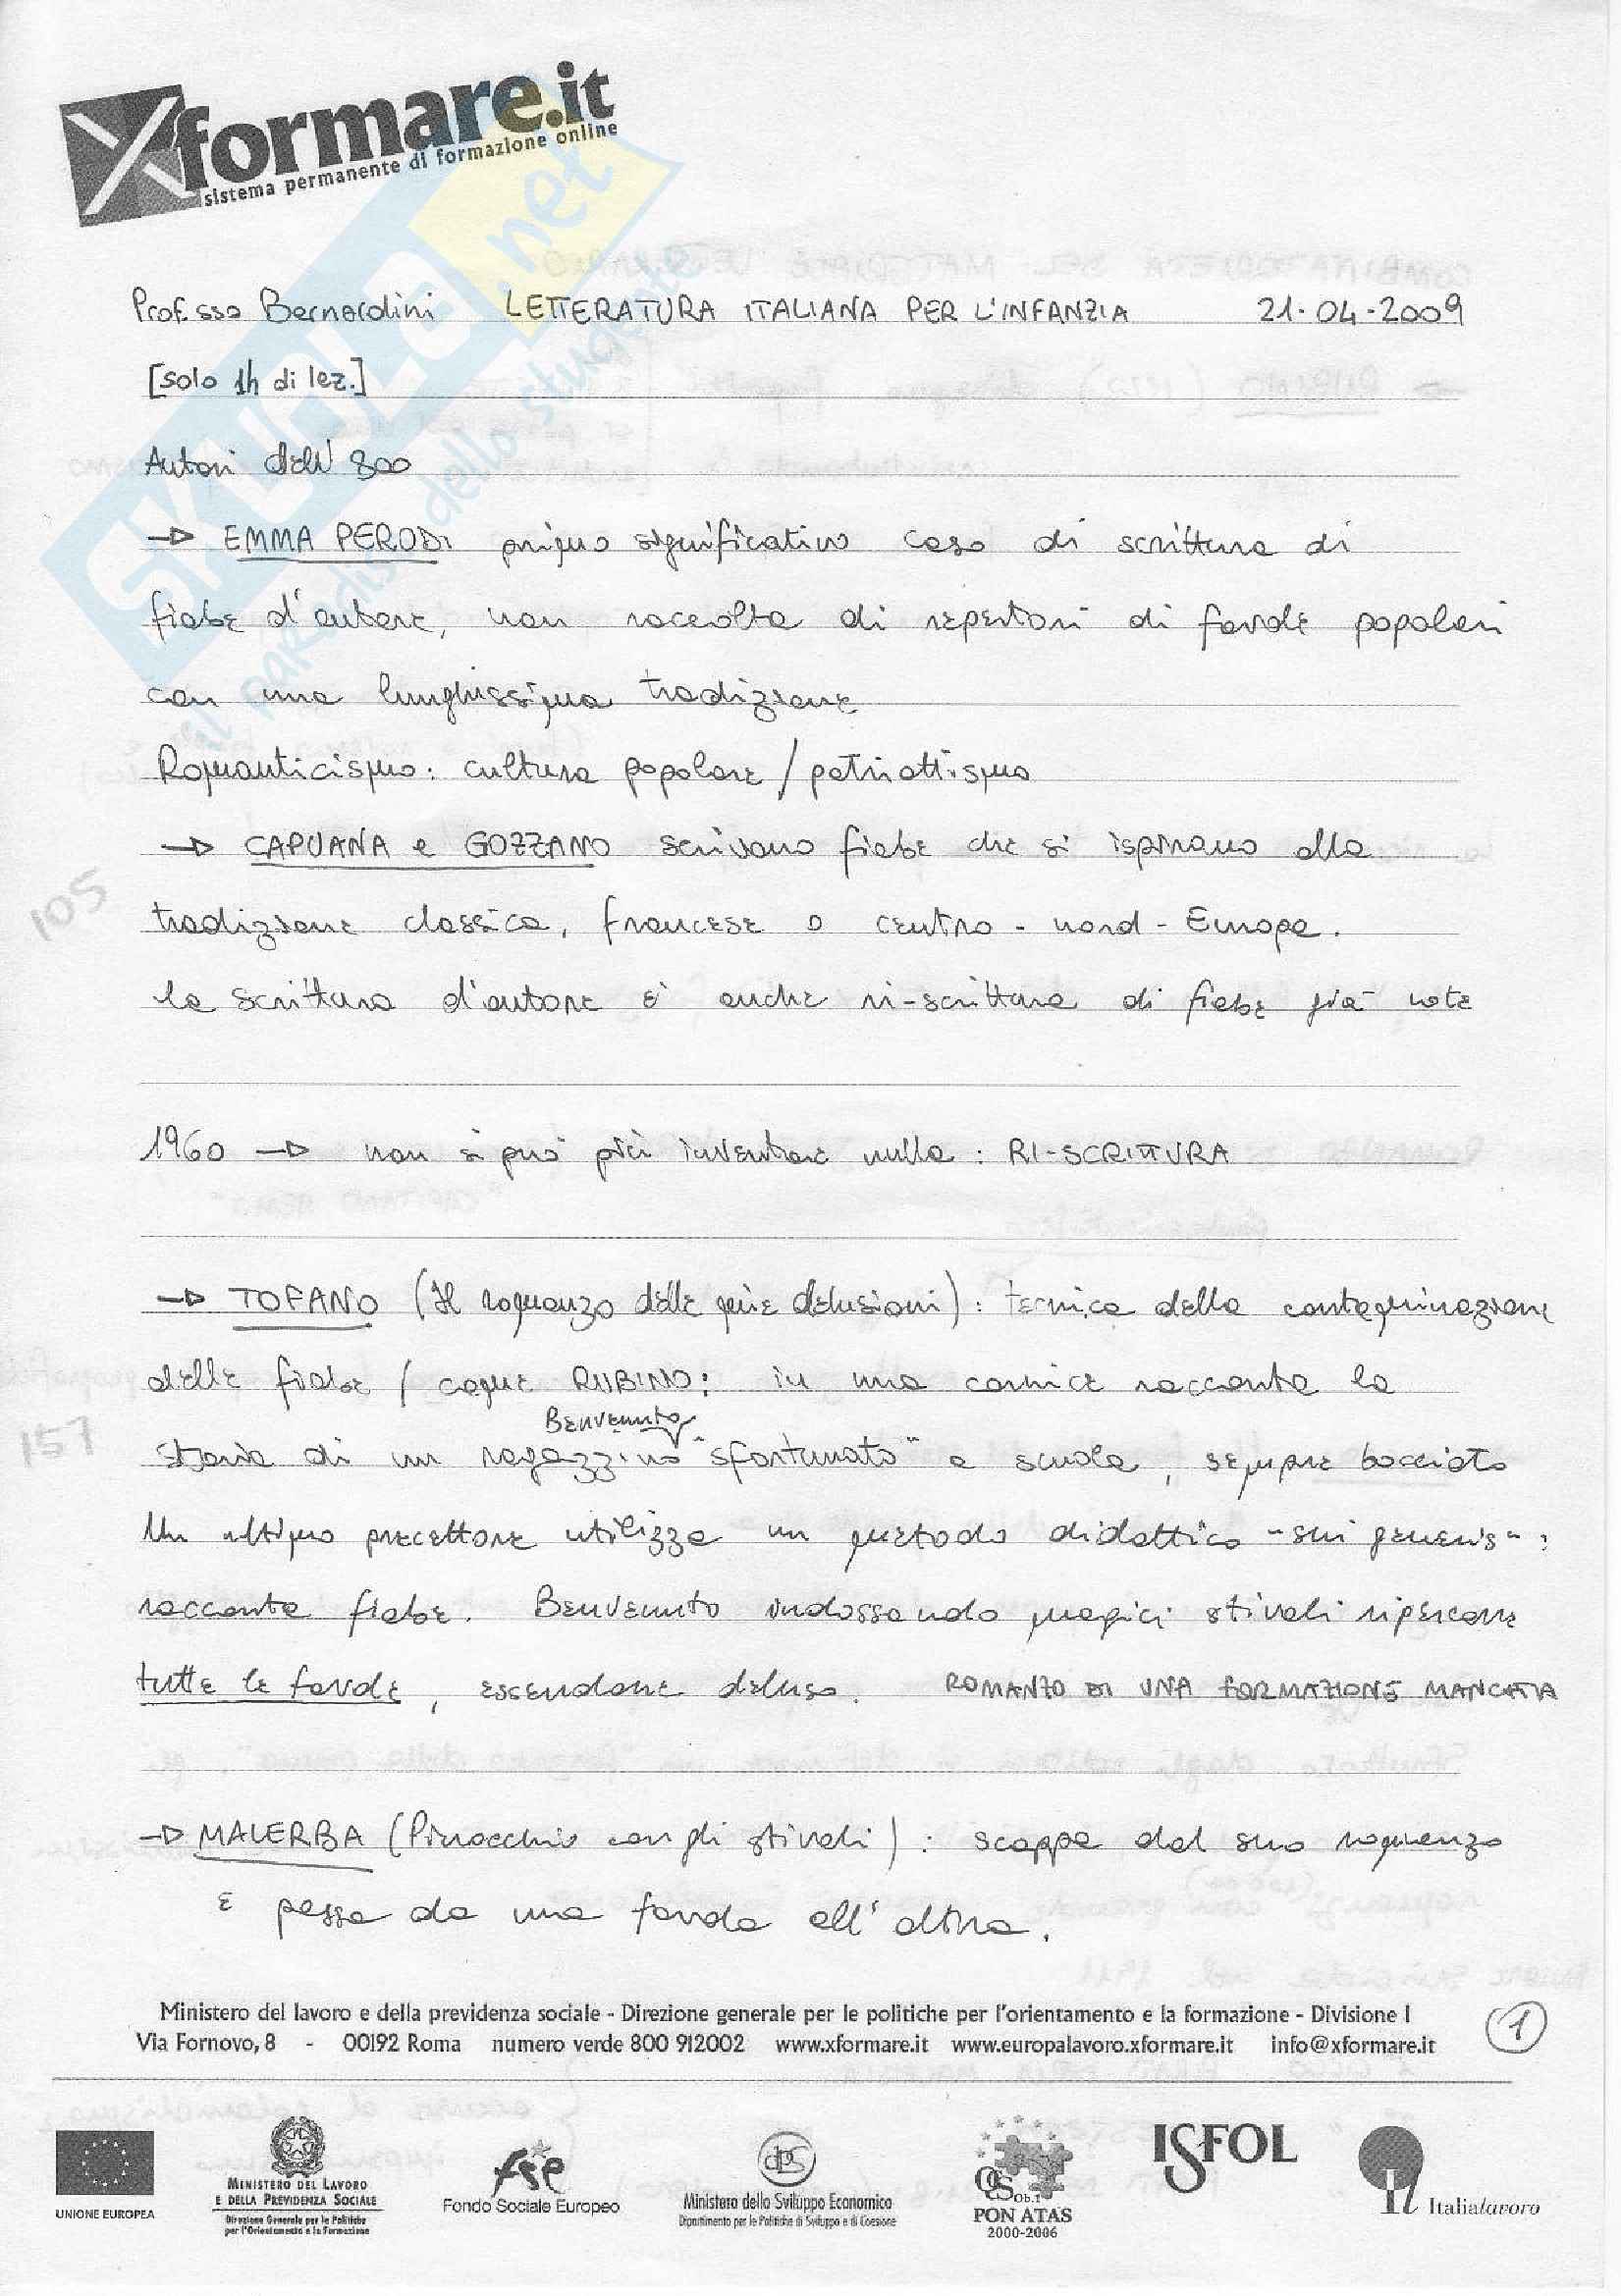 Xformare.it
sistema permanente di formazione online
SKUOLA.net
il paradiso dello studente
Prof.ssa Bernardini LETTERATURA ITALIANA PER L'INFANZIA 21-04-2009
[solo 1h di lez.]
Autori dell'800
→ EMMA PERODI primo significativo caso di scrittura di
fiabe d'autore, non raccolta di repertori di favole popolari
con una lunghissima tradizione
Romanticismo: cultura popolare / patriottismo
→ CAPUANA e GOZZANO scrivono fiabe che si ispirano alla
105
tradizione classica, francese o centro-nord-Europa.
la scrittura d'autore è anche ri-scrittura di fiabe già note
1960 → non si può più inventare nulla: RI-SCRITTURA
→ TOFANO (Il romanzo delle mie delusioni): tecnica della contaminazione
delle fiabe / come RUBINO: in una cornice racconta la
157
storia di un ragazzino Benvenuto "sfortunato" a scuola, sempre bocciato
Un ultimo precettore utilizza un metodo didattico "sui generis":
racconta fiabe. Benvenuto indossando magici stivali ripercorre
tutte le favole, essendone deluso. ROMANZO DI UNA FORMAZIONE MANCATA
→ MALERBA (Pinocchio con gli stivali): scappa dal suo romanzo
e passa da una favola all'altra.
Ministero del lavoro e della previdenza sociale - Direzione generale per le politiche per l'orientamento e la formazione - Divisione I
Via Fornovo, 8 - 00192 Roma numero verde 800 912002 www.xformare.it www.europalavoro.xformare.it info@xformare.it
1
UNIONE EUROPEA
MINISTERO DEL LAVORO
E DELLA PREVIDENZA SOCIALE
Direzione Generale per le Politiche
per l'Orientamento e la Formazione
fse
Fondo Sociale Europeo
dps
Ministero dello Sviluppo Economico
Dipartimento per le Politiche di Sviluppo e di Coesione
QCS Ob.1
PON ATAS
2000-2006
ISFOL
Il
Italialavoro